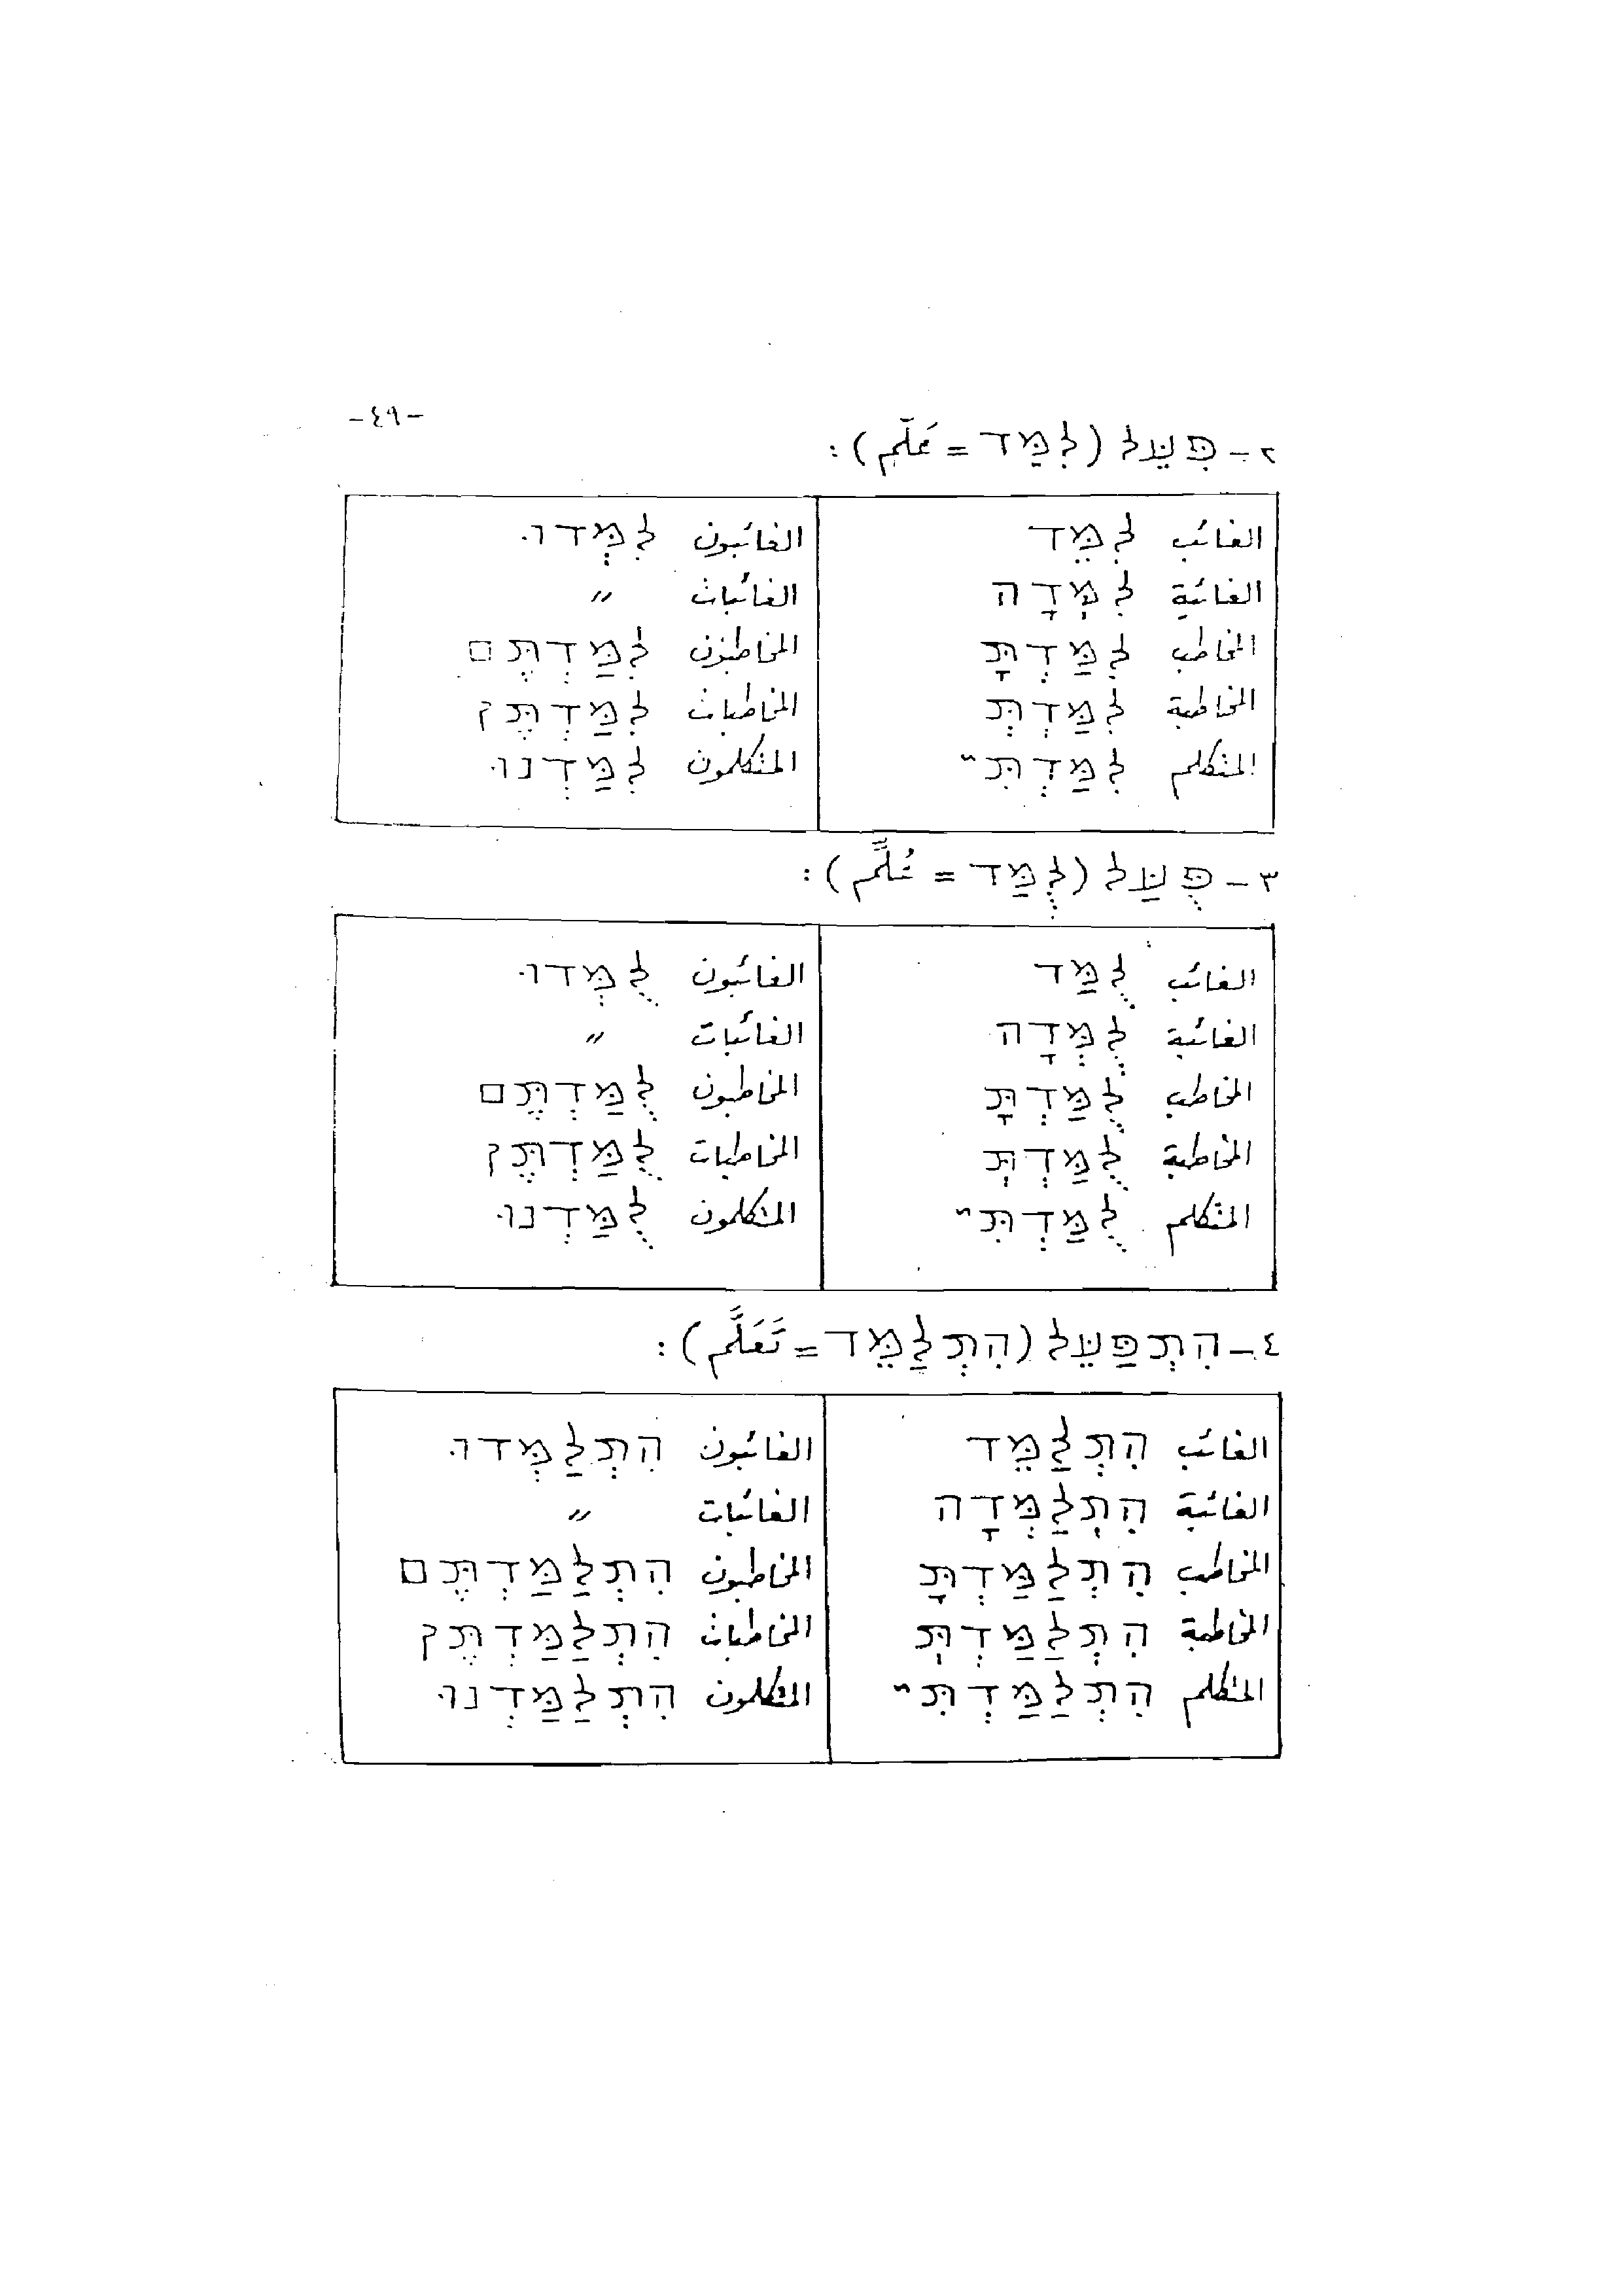 -٤٩-
٢- פִּעֵּל (לִמַּד = عَلَّم):
الغائب לִמֵּד الغائبون לִמְּדוּ
الغائبة לִמְּדָה الغائبات 〃
المخاطب לִמַּדְתָּ المخاطبون לִמַּדְתֶּם
المخاطبة לִמַּדְתְּ المخاطبات לִמַּדְתֶּן
المتكلم לִמַּדְתִּי المتكلمون לִמַּדְנוּ
٣- פֻּעַּל (לֻמַּד = عُلِّم):
الغائب לֻמַּד الغائبون לֻמְּדוּ
الغائبة לֻמְּדָה الغائبات 〃
المخاطب לֻמַּדְתָּ المخاطبون לֻמַּדְתֶּם
المخاطبة לֻמַּדְתְּ المخاطبات לֻמַּדְתֶּן
المتكلم לֻמַּדְתִּי المتكلمون לֻמַּדְנוּ
٤- הִתְפַּעֵּל (הִתְלַמֵּד = تَعَلَّم):
الغائب הִתְלַמֵּד الغائبون הִתְלַמְּדוּ
الغائبة הִתְלַמְּדָה الغائبات 〃
المخاطب הִתְלַמַּדְתָּ المخاطبون הִתְלַמַּדְתֶּם
المخاطبة הִתְלַמַּדְתְּ المخاطبات הִתְלַמַּדְתֶּן
المتكلم הִתְלַמַּדְתִּי المتكلمون הִתְלַמַּדְנוּ